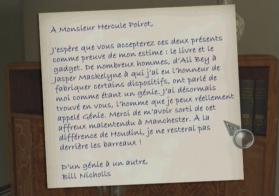 À Monsieur Hercule Poirot,
J'espère que vous accepterez ces deux présents
comme preuve de mon estime : le livre et le
gadget. De nombreux hommes, d'Ali Bey à
Jasper Maskelyne à qui j'ai eu l'honneur de
fabriquer certains dispositifs, ont parlé de
moi comme étant un génie. J'ai désormais
trouvé en vous, l'homme que je peux réellement
appelé génie. Merci de m'avoir sorti de cet
affreux malentendu à Manchester. À la
différence de Houdini, je ne resterai pas
derrière les barreaux !
D'un génie à un autre,
Bill Nicholls